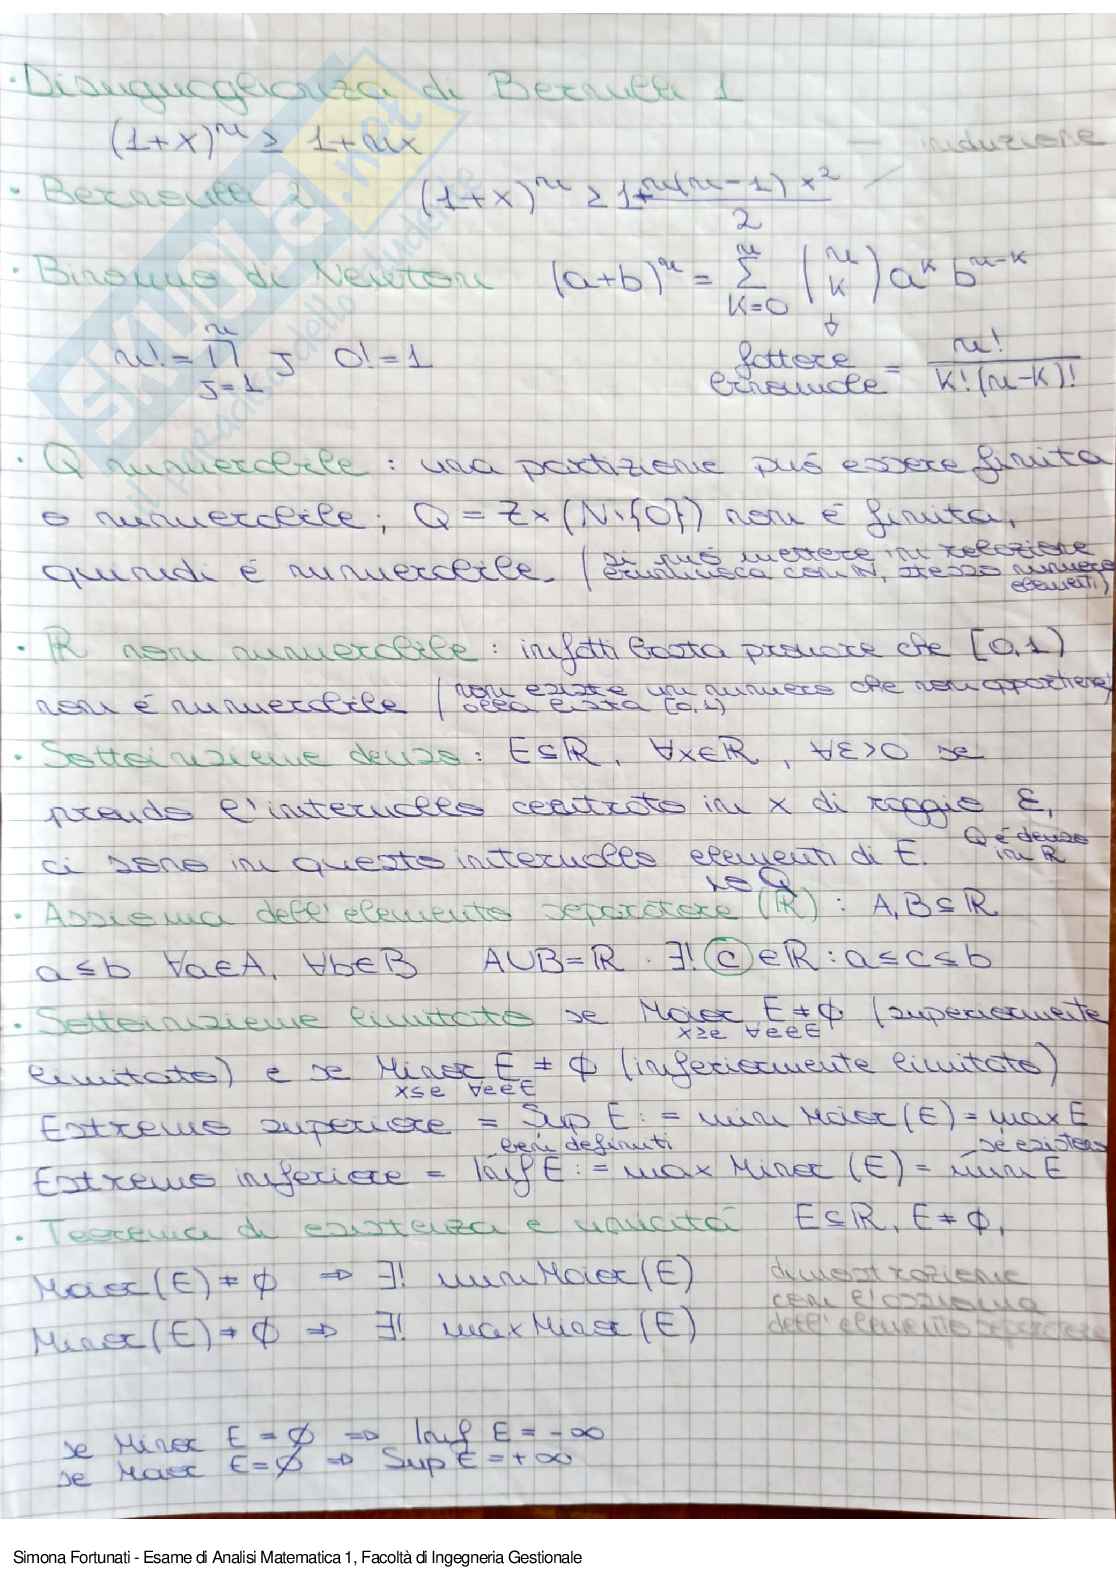 · Disuguaglianza di Bernulli 1
(1+x)ⁿ ≥ 1+nx
— induzione
· Bernoulli 2 (1+x)ⁿ ≥ 1+ n(n-1) x² / 2
· Binomio di Newton (a+b)ⁿ = Σ_{K=0}^{n} (n K) aᴷ bⁿ⁻ᴷ
n! = Π_{J=1}^{n} J 0! = 1 fattore binomiale = n! / K!(n-K)!
· Q numerabile : una partizione può essere finita
o numerabile; Q = Z×(N\{0}) non è finita,
quindi è numerabile. (si può mettere in relazione
biunivoca con N, stesso numero
elementi)
· ℝ non numerabile : infatti basta provare che [0,1)
non è numerabile (non esiste un numero che non appartiene
alla lista [0,1)
· Sottoinsieme denso : E⊆ℝ, ∀x∈ℝ, ∀ε>0 se
prendo l'intervallo centrato in x di raggio ε,
ci sono in questo intervallo elementi di E. Q è denso
in ℝ
no Q
· Assioma dell'elemento separatore (ℝ) : A,B⊆ℝ
a≤b ∀a∈A, ∀b∈B A∪B=ℝ · ∃! c ∈ℝ : a≤c≤b
· Sottoinsieme limitato se Maior E ≠ ∅ (superiormente
x≥e ∀e∈E
limitato) e se Minor E ≠ ∅ (inferiormente limitato)
x≤e ∀e∈E
Estremo superiore = Sup E := min Maior(E) = max E
ben definiti se esistono
Estremo inferiore = Inf E := max Minor (E) = min E
· Teorema di esistenza e unicità E⊆ℝ, E≠∅,
Maior(E)≠∅ ⇒ ∃! min Maior(E)
Minor(E)≠∅ ⇒ ∃! max Minor(E)
dimostrazione
con l'assioma
dell'elemento separatore
se Minor E = ∅ ⇒ Inf E = -∞
se Maior E = ∅ ⇒ Sup E = +∞
SKUOLA.net
il paradiso dello studente
Simona Fortunati - Esame di Analisi Matematica 1, Facoltà di Ingegneria Gestionale